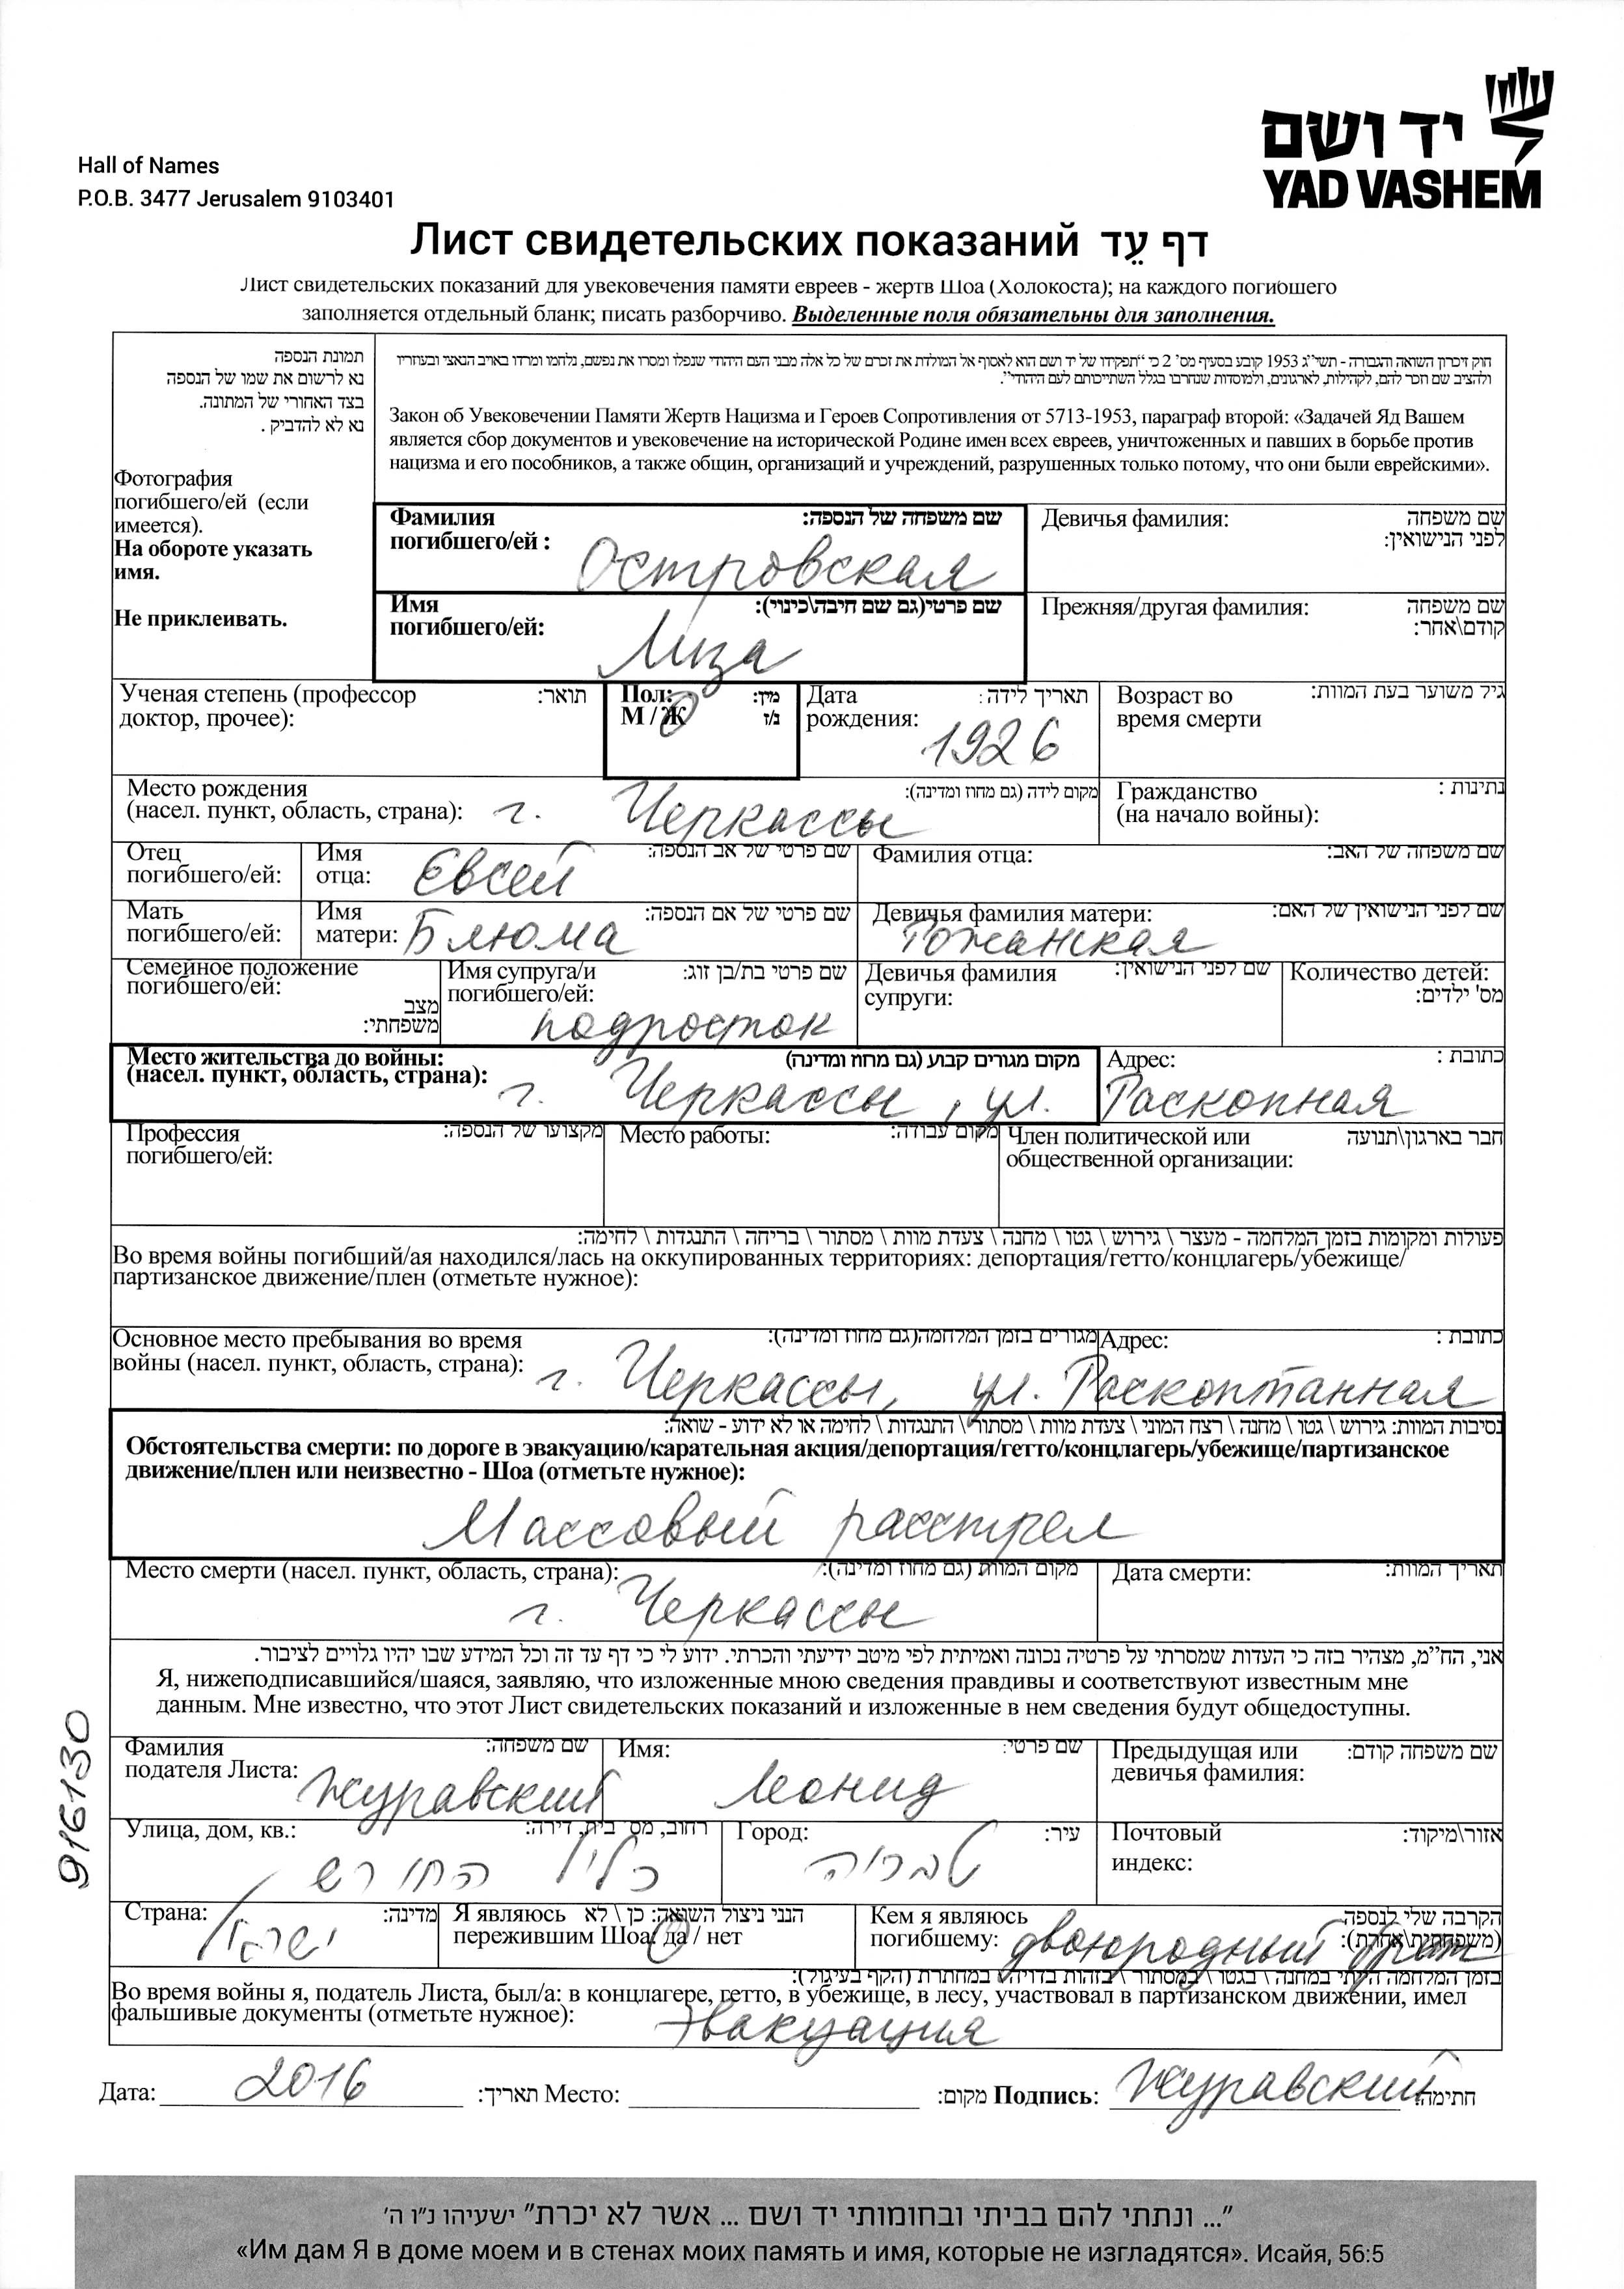 יד ושם
YAD VASHEM
Hall of Names
P.O.B. 3477 Jerusalem 9103401
Лист свидетельских показаний דף עֵד
Лист свидетельских показаний для увековечения памяти евреев - жертв Шоа (Холокоста); на каждого погибшего
заполняется отдельный бланк; писать разборчиво. Выделенные поля обязательны для заполнения.
תמונת הנספה
נא לרשום את שמו של הנספה
בצד האחורי של המתונה.
נא לא להדביק .
Фотография
погибшего/ей (если
имеется).
На обороте указать
имя.
Не приклеивать.
חוק זיכרון השואה והגבורה - תשי״ג 1953 קובע בסעיף מס' 2 כי ״תפקידו של יד ושם הוא לאסוף אל המולדת את זכרם של כל אלה מבני העם היהודי שנפלו ומסרו את נפשם, נלחמו ומרדו באויב הנאצי ובעוזריו
ולהציב שם וזכר להם, לקהילות, לארגונים, ולמוסדות שנחרבו בגלל השתייכותם לעם היהודי״.
Закон об Увековечении Памяти Жертв Нацизма и Героев Сопротивления от 5713-1953, параграф второй: «Задачей Яд Вашем
является сбор документов и увековечение на исторической Родине имен всех евреев, уничтоженных и павших в борьбе против
нацизма и его пособников, а также общин, организаций и учреждений, разрушенных только потому, что они были еврейскими».
Фамилия שם משפחה של הנספה:
погибшего/ей :
Островская
Девичья фамилия: שם משפחה
לפני הנישואין:
Имя שם פרטי(גם שם חיבה\כינוי):
погибшего/ей:
Лиза
Прежняя/другая фамилия: שם משפחה
קודם\אחר:
Ученая степень (профессор תואר:
доктор, прочее):
Пол: מין:
М / Ж ז/נ
Дата תאריך לידה :
рождения:
1926
Возраст во גיל משוער בעת המוות:
время смерти
Место рождения
(насел. пункт, область, страна): מקום לידה (גם מחוז ומדינה):
г. Черкассы
Гражданство נתינות :
(на начало войны):
Отец
погибшего/ей:
Имя שם פרטי של אב הנספה:
отца: Євсей
Фамилия отца: שם משפחה של האב:
Мать
погибшего/ей:
Имя שם פרטי של אם הנספה:
матери: Блюма
Девичья фамилия матери: שם לפני הנישואין של האם:
Рожанская
Семейное положение
погибшего/ей:
מצב
משפחתי:
Имя супруга/и שם פרטי בת/בן זוג:
погибшего/ей:
подросток
Девичья фамилия שם לפני הנישואין:
супруги:
Количество детей:
מס' ילדים:
Место жительства до войны: מקום מגורים קבוע (גם מחוז ומדינה)
(насел. пункт, область, страна):
г. Черкассы, ул.
Адрес: כתובת :
Раскопная
Профессия מקצועו של הנספה:
погибшего/ей:
Место работы: מקום עבודה:
Член политической или חבר בארגון\תנועה
общественной организации:
פעולות ומקומות בזמן המלחמה - מעצר \ גירוש \ גטו \ מחנה \ צעדת מוות \ מסתור \ בריחה \ התנגדות \ לחימה:
Во время войны погибший/ая находился/лась на оккупированных территориях: депортация/гетто/концлагерь/убежище/
партизанское движение/плен (отметьте нужное):
Основное место пребывания во время מגורים בזמן המלחמה(גם מחוז ומדינה):
войны (насел. пункт, область, страна):
Адрес: כתובת :
г. Черкассы, ул. Раскоптанная
נסיבות המוות: גירוש \ גטו \ מחנה \ רצח המוני \ צעדת מוות \ מסתור \ התנגדות \ לחימה או לא ידוע - שואה:
Обстоятельства смерти: по дороге в эвакуацию/карательная акция/депортация/гетто/концлагерь/убежище/партизанское
движение/плен или неизвестно - Шоа (отметьте нужное):
Массовый расстрел
Место смерти (насел. пункт, область, страна): מקום המוות (גם מחוז ומדינה):
г. Черкассы
Дата смерти: תאריך המוות:
אני, הח״מ, מצהיר בזה כי העדות שמסרתי על פרטיה נכונה ואמיתית לפי מיטב ידיעתי והכרתי. ידוע לי כי דף עד זה וכל המידע שבו יהיו גלויים לציבור.
Я, нижеподписавшийся/шаяся, заявляю, что изложенные мною сведения правдивы и соответствуют известным мне
данным. Мне известно, что этот Лист свидетельских показаний и изложенные в нем сведения будут общедоступны.
916130
Фамилия שם משפחה:
подателя Листа: Журавский
Имя: שם פרטי:
Леонид
Предыдущая или שם משפחה קודם:
девичья фамилия:
Улица, дом, кв.: רחוב, מס' בית, דירה:
כליל החורש
Город: עיר:
טבריה
Почтовый אזור\מיקוד:
индекс:
Страна: מדינה:
ישראל
Я являюсь הנני ניצול השואה: כן \ לא
пережившим Шоа: да / нет
Кем я являюсь הקרבה שלי לנספה
погибшему: (משפחתית\אחרת):
двоюродный брат
בזמן המלחמה הייתי במחנה \ בגטו \ במסתור \ בזהות בדויה \ במחתרת (הקף בעיגול):
Во время войны я, податель Листа, был/а: в концлагере, гетто, в убежище, в лесу, участвовал в партизанском движении, имел
фальшивые документы (отметьте нужное): Эвакуация
Дата: 2016 תאריך: Место: מקום: Подпись: Журавский חתימה:
״... ונתתי להם בביתי ובחומותי יד ושם ... אשר לא יכרת״ ישעיהו נ״ו ה׳
«Им дам Я в доме моем и в стенах моих память и имя, которые не изгладятся». Исайя, 56:5